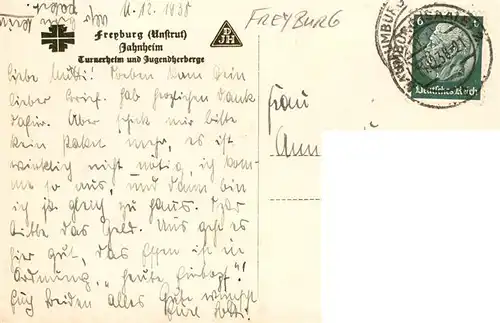 11.12.1938
FREYBURG
DJH
Freyburg (Unstrut)
Jahnheim
Turnerheim und Jugendherberge
Liebe Mutti! Soeben kam Dein
lieber Brief. Hab herzlichen Dank
dafür. Aber schick mir bitte
kein Paket mehr, es ist
wirklich nicht nötig, ich kom-
me so aus, und dann bin
ich ja gleich zu Haus.
bitte das Geld. Uns geht es
hier gut, das Essen ist in
Ordnung, "heute Eintopf"!
Euch beiden alles Gute wünscht
Frau
Deutsches Reich